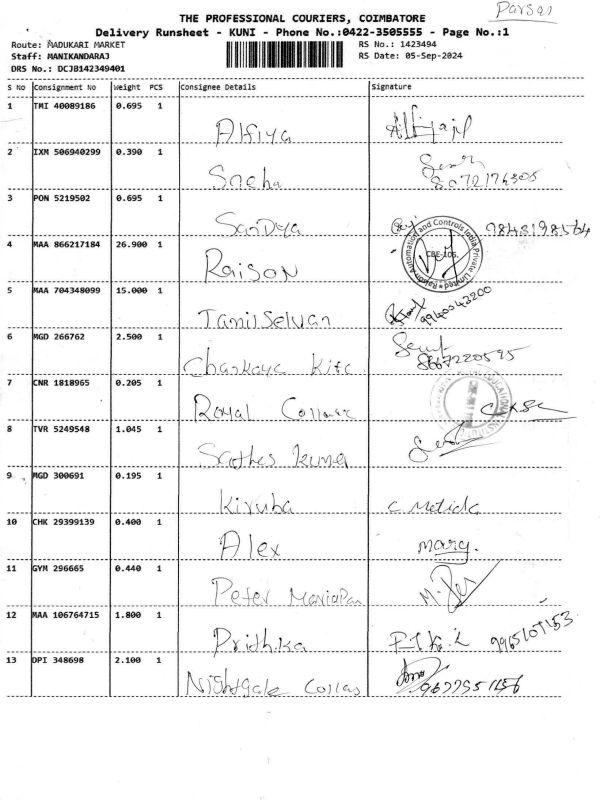 Parsal
THE PROFESSIONAL COURIERS, COIMBATORE
Delivery Runsheet - KUNI - Phone No.:0422-3505555 - Page No.:1
Route: MADUKARI MARKET RS No.: 1423494
Staff: MANIKANDARAJ RS Date: 05-Sep-2024
DRS No.: DCJB142349401
S No Consignment No Weight PCS Consignee Details Signature
1 TMI 40089186 0.695 1 Alfiya
2 IXM 506940299 0.390 1 Sneha
3 PON 5219502 0.695 1 Sandya
4 MAA 866217184 26.900 1 Raison
Raison Automation and Controls India Private Limited
CBE-105.
5 MAA 704348099 15.000 1 Tamilselvan 9940043200
6 MGD 266762 2.500 1 8667220595
7 CNR 1818965 0.205 1 Royal
8 TVR 5249548 1.045 1 Sathes kumar
9 MGD 300691 0.195 1 Kiruba
10 CHK 29399139 0.400 1 Alex mary.
11 GYM 296665 0.440 1 Peter Mariapan
12 MAA 106764715 1.800 1 Prithika
13 DPI 348698 2.100 1 Nightgale Collas